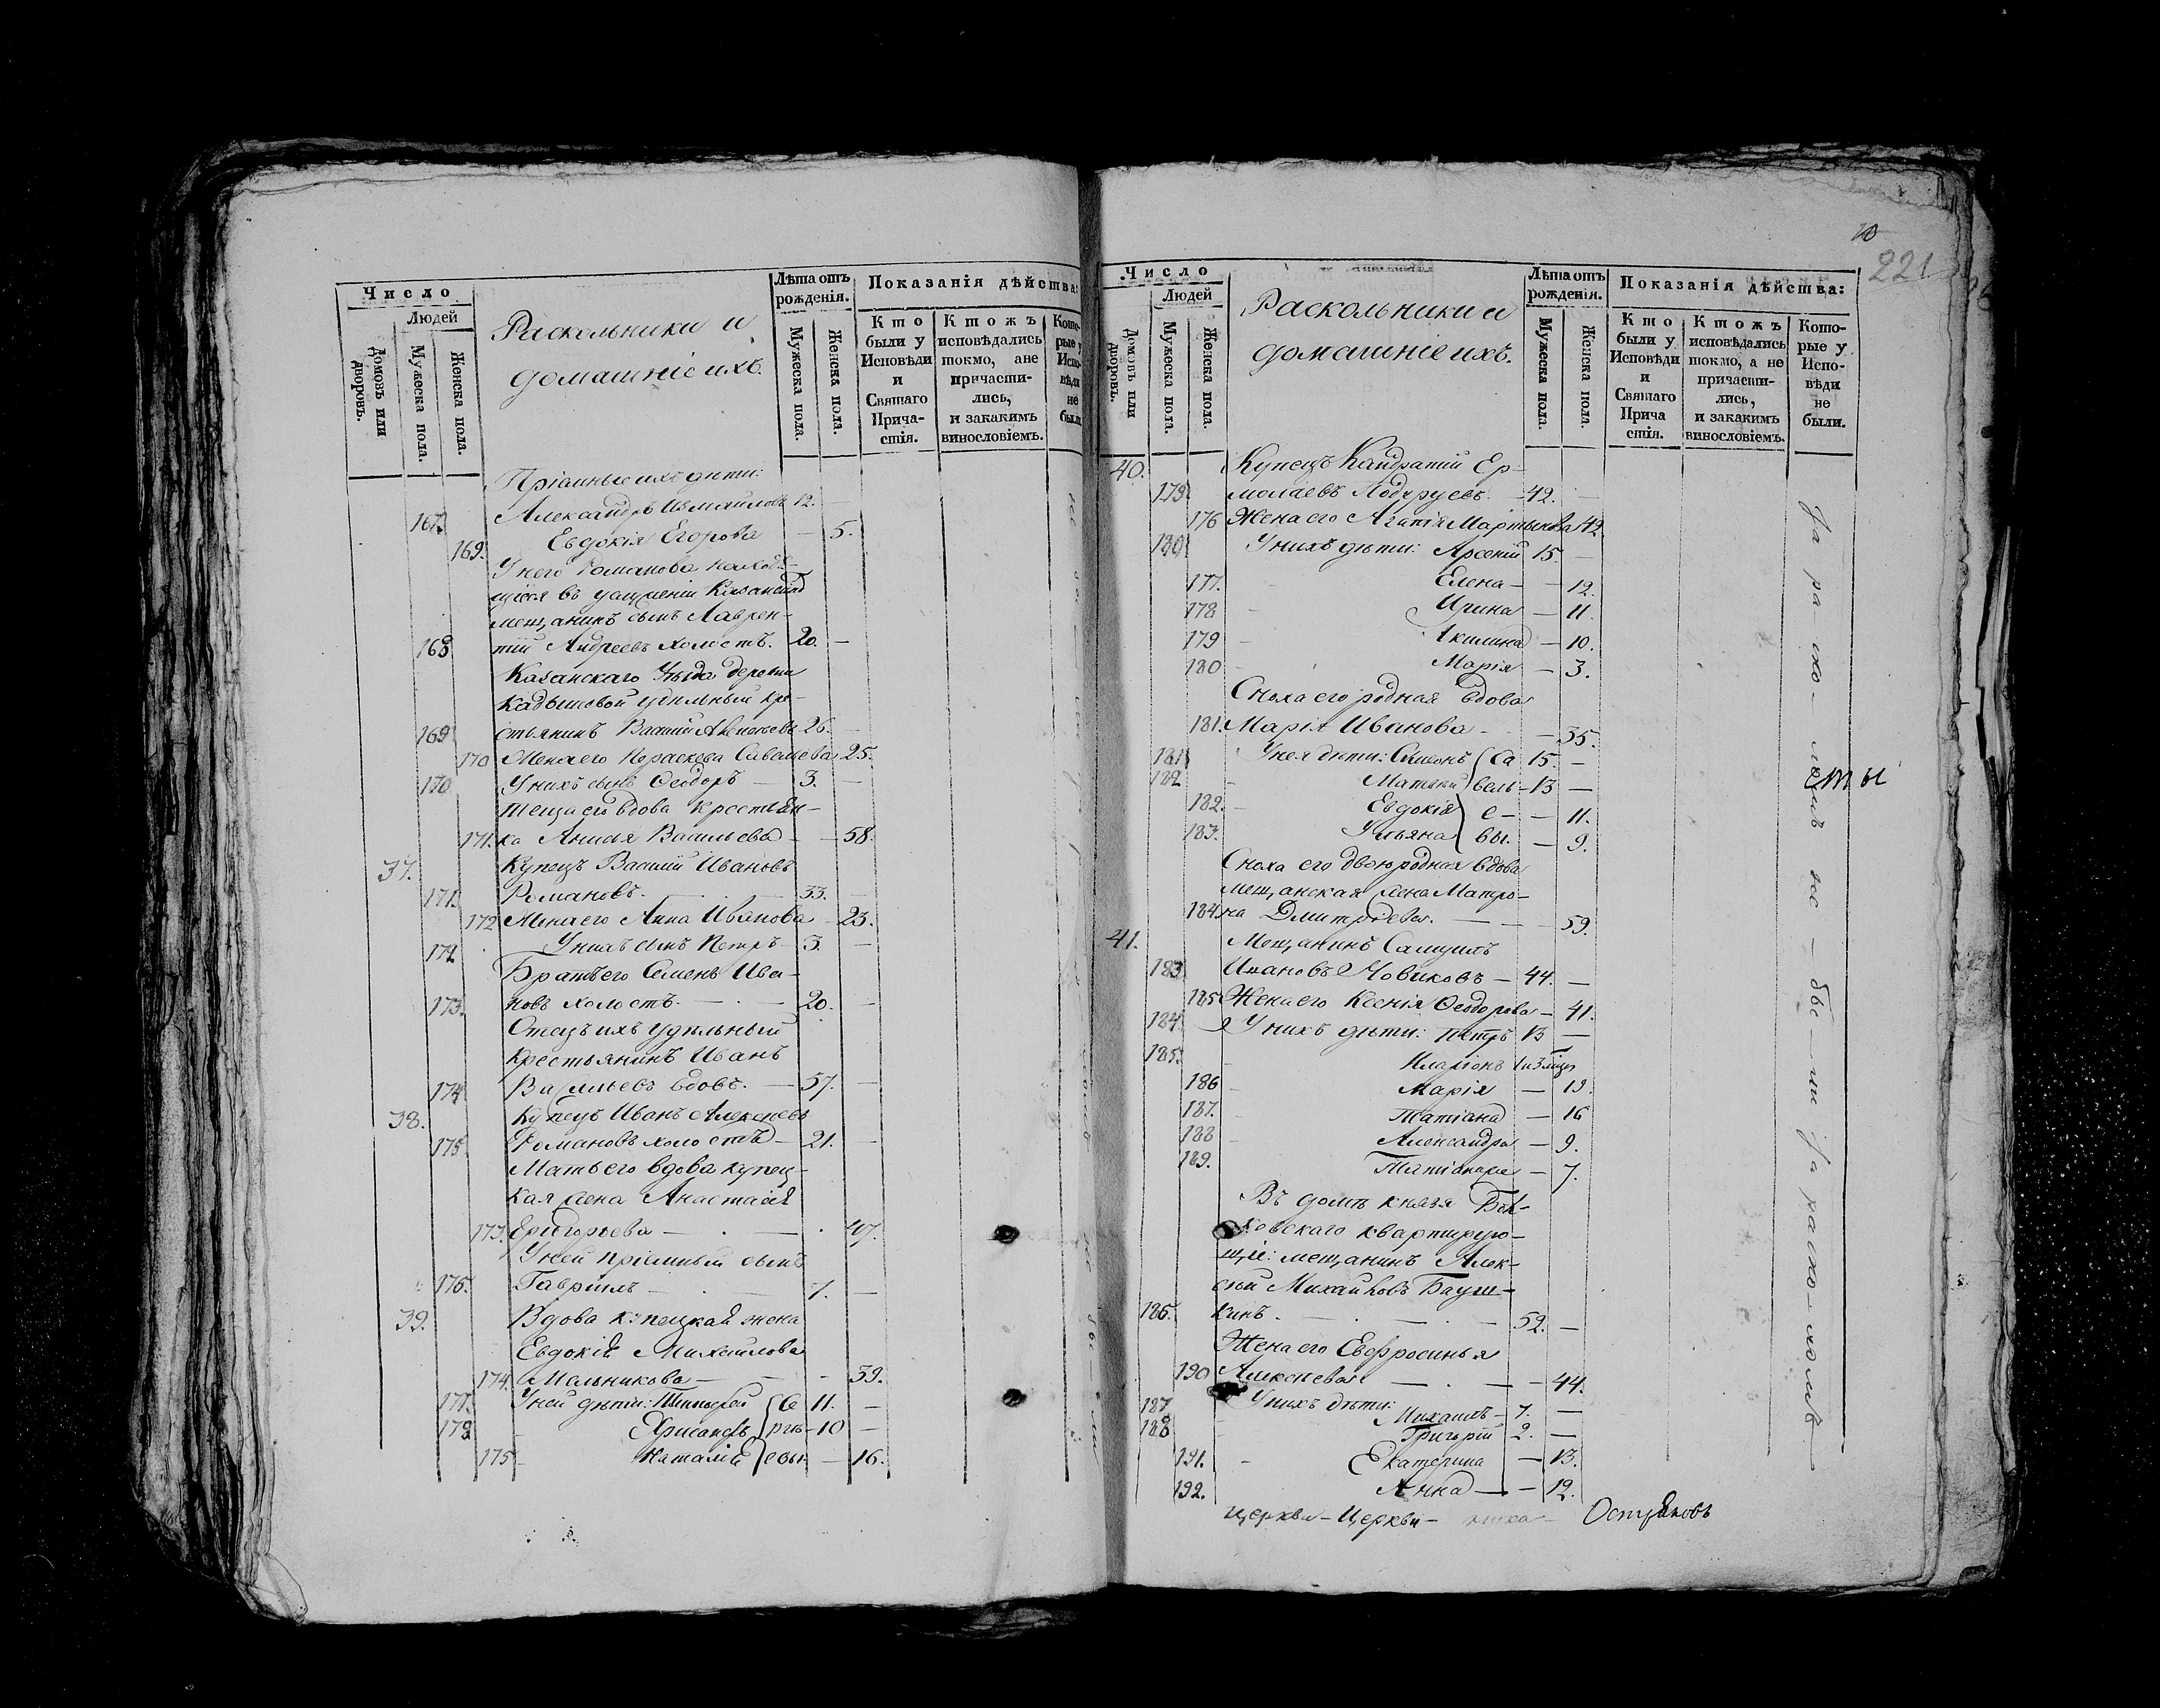 Число
Людей
Домовъ или дворовъ.
Мужеска пола.
Женска пола.
Раскольники и
домашніе ихъ.
Лѣта отъ рожденія.
Мужеска пола.
Женска пола.
Показанія дѣйства:
Кто были у Исповѣди и Святаго Прича-стія.
Ктожъ исповѣдались токмо, а не причасти-лись, и за какимъ винословіемъ.
Кото-рые у Испо-вѣди не были.
Пріемные ихъ дѣти:
167. Александръ Измаиловъ 12.
169. Евдокія Егорова — 5.
У него Романова находя-
щіеся въ услуженіи Казанскій
мещанинъ сынъ Лаврен-
168 тій Андреевъ холостъ. 20. —
Казанскаго Уѣзда деревни
Кадышовой удѣльный кре-
169 стьянинъ Василій 26. —
170 Жена его Параскева Савельева 25.
170 У нихъ сынъ Ѳеодоръ — 3.
Теща его вдова крестьян-
171. ка Анисья Васильева — — 58.
37. Купецъ Василій Ивановъ
171. Романовъ. — 33. —
172 Жена его Анна Иванова — 23.
172 У нихъ сынъ Петръ — 3. —
Братъ его Семенъ Ива-
173. новъ холостъ. — 20. —
Отецъ ихъ удѣльный
крестьянинъ Иванъ
174 Васильевъ вдовъ. — 57. —
38. Купецъ Иванъ Алексѣевъ
175 Романовъ холостъ — 21. —
Мать его вдова купец-
кая жена Анастасія
173. Григорьева — 47.
У ней пріемный сынъ
176. Гавріилъ — 7. —
39. Вдова купецкая жена
Евдокія Михайлова
174. Мельникова — 39.
177. У ней дѣти: Тимоѳей Се 11. —
178 Хрисанфъ ргѣ — 10 —
175 Наталія евы — 16.
10
221
Число
Людей
Домовъ или дворовъ.
Мужеска пола.
Женска пола.
Раскольники и
домашніе ихъ.
Лѣта отъ рожденія.
Мужеска пола.
Женска пола.
Показанія дѣйства:
Кто были у Исповѣди и Святаго Прича стія.
Ктожъ исповѣдались токмо, а не причасти-лись, и за какимъ винословіемъ.
Кото-рые у Испо-вѣди не были.
40. Купецъ Кандратій Ер-
179. молаевъ Подуруевъ. — 42. —
176 Жена его Агапія Мартынова 42
180 У нихъ дѣти: Арсеній 15. —
177. Елена — — 12.
178 Ирина — 11.
179 Акилина — 10.
180 Марія — 3.
Сноха его родная вдова
181. Марія Иванова — — 35.
181 У нея дѣти: Симеонъ Са 15. —
182 Матѳей вель — 13 —
182. Евдокія е — — 11.
183. Ульяна вы. — 9.
Сноха его двоюродная вдова
мещанская жена Матро-
184. на Дмитріева. — — 59.
41. Мещанинъ Самуилъ
183 Ивановъ Новиковъ — 44. —
185 Жена его Ксенія Ѳеодорова — 41.
184. У нихъ дѣти: Петръ 13 —
185. Иларіонъ
186 Марія — 19.
187. Татіана — 16
188 Александра — 9.
189. — 7.
Въ домѣ князя
квартирую-
щіе: мещанинъ Алек-
сѣй Михайловъ Бауш-
186. кинъ. — 52. —
Жена его Евфросинья
190 Алексѣева — — 44.
187 У нихъ дѣти: Михаилъ — 7. —
188 Григорій 2. —
191. Екатерина — 13.
192. Анна — — 12.
Церкви — Церкви — Остряковъ